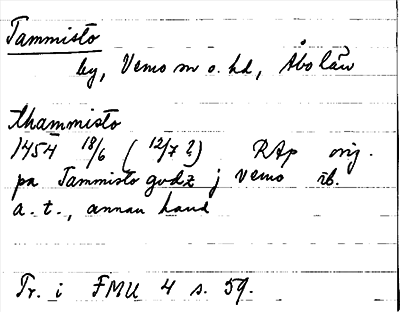 Tammisto
by, Vemo sn o. hd, Åbo län
thammisto
1454 18/6 ( 12/7 ?) RAp orig.
pa Tammisto godz j Vemo rb.
a.t., annan hand
Tr. i FMU 4 s. 59.